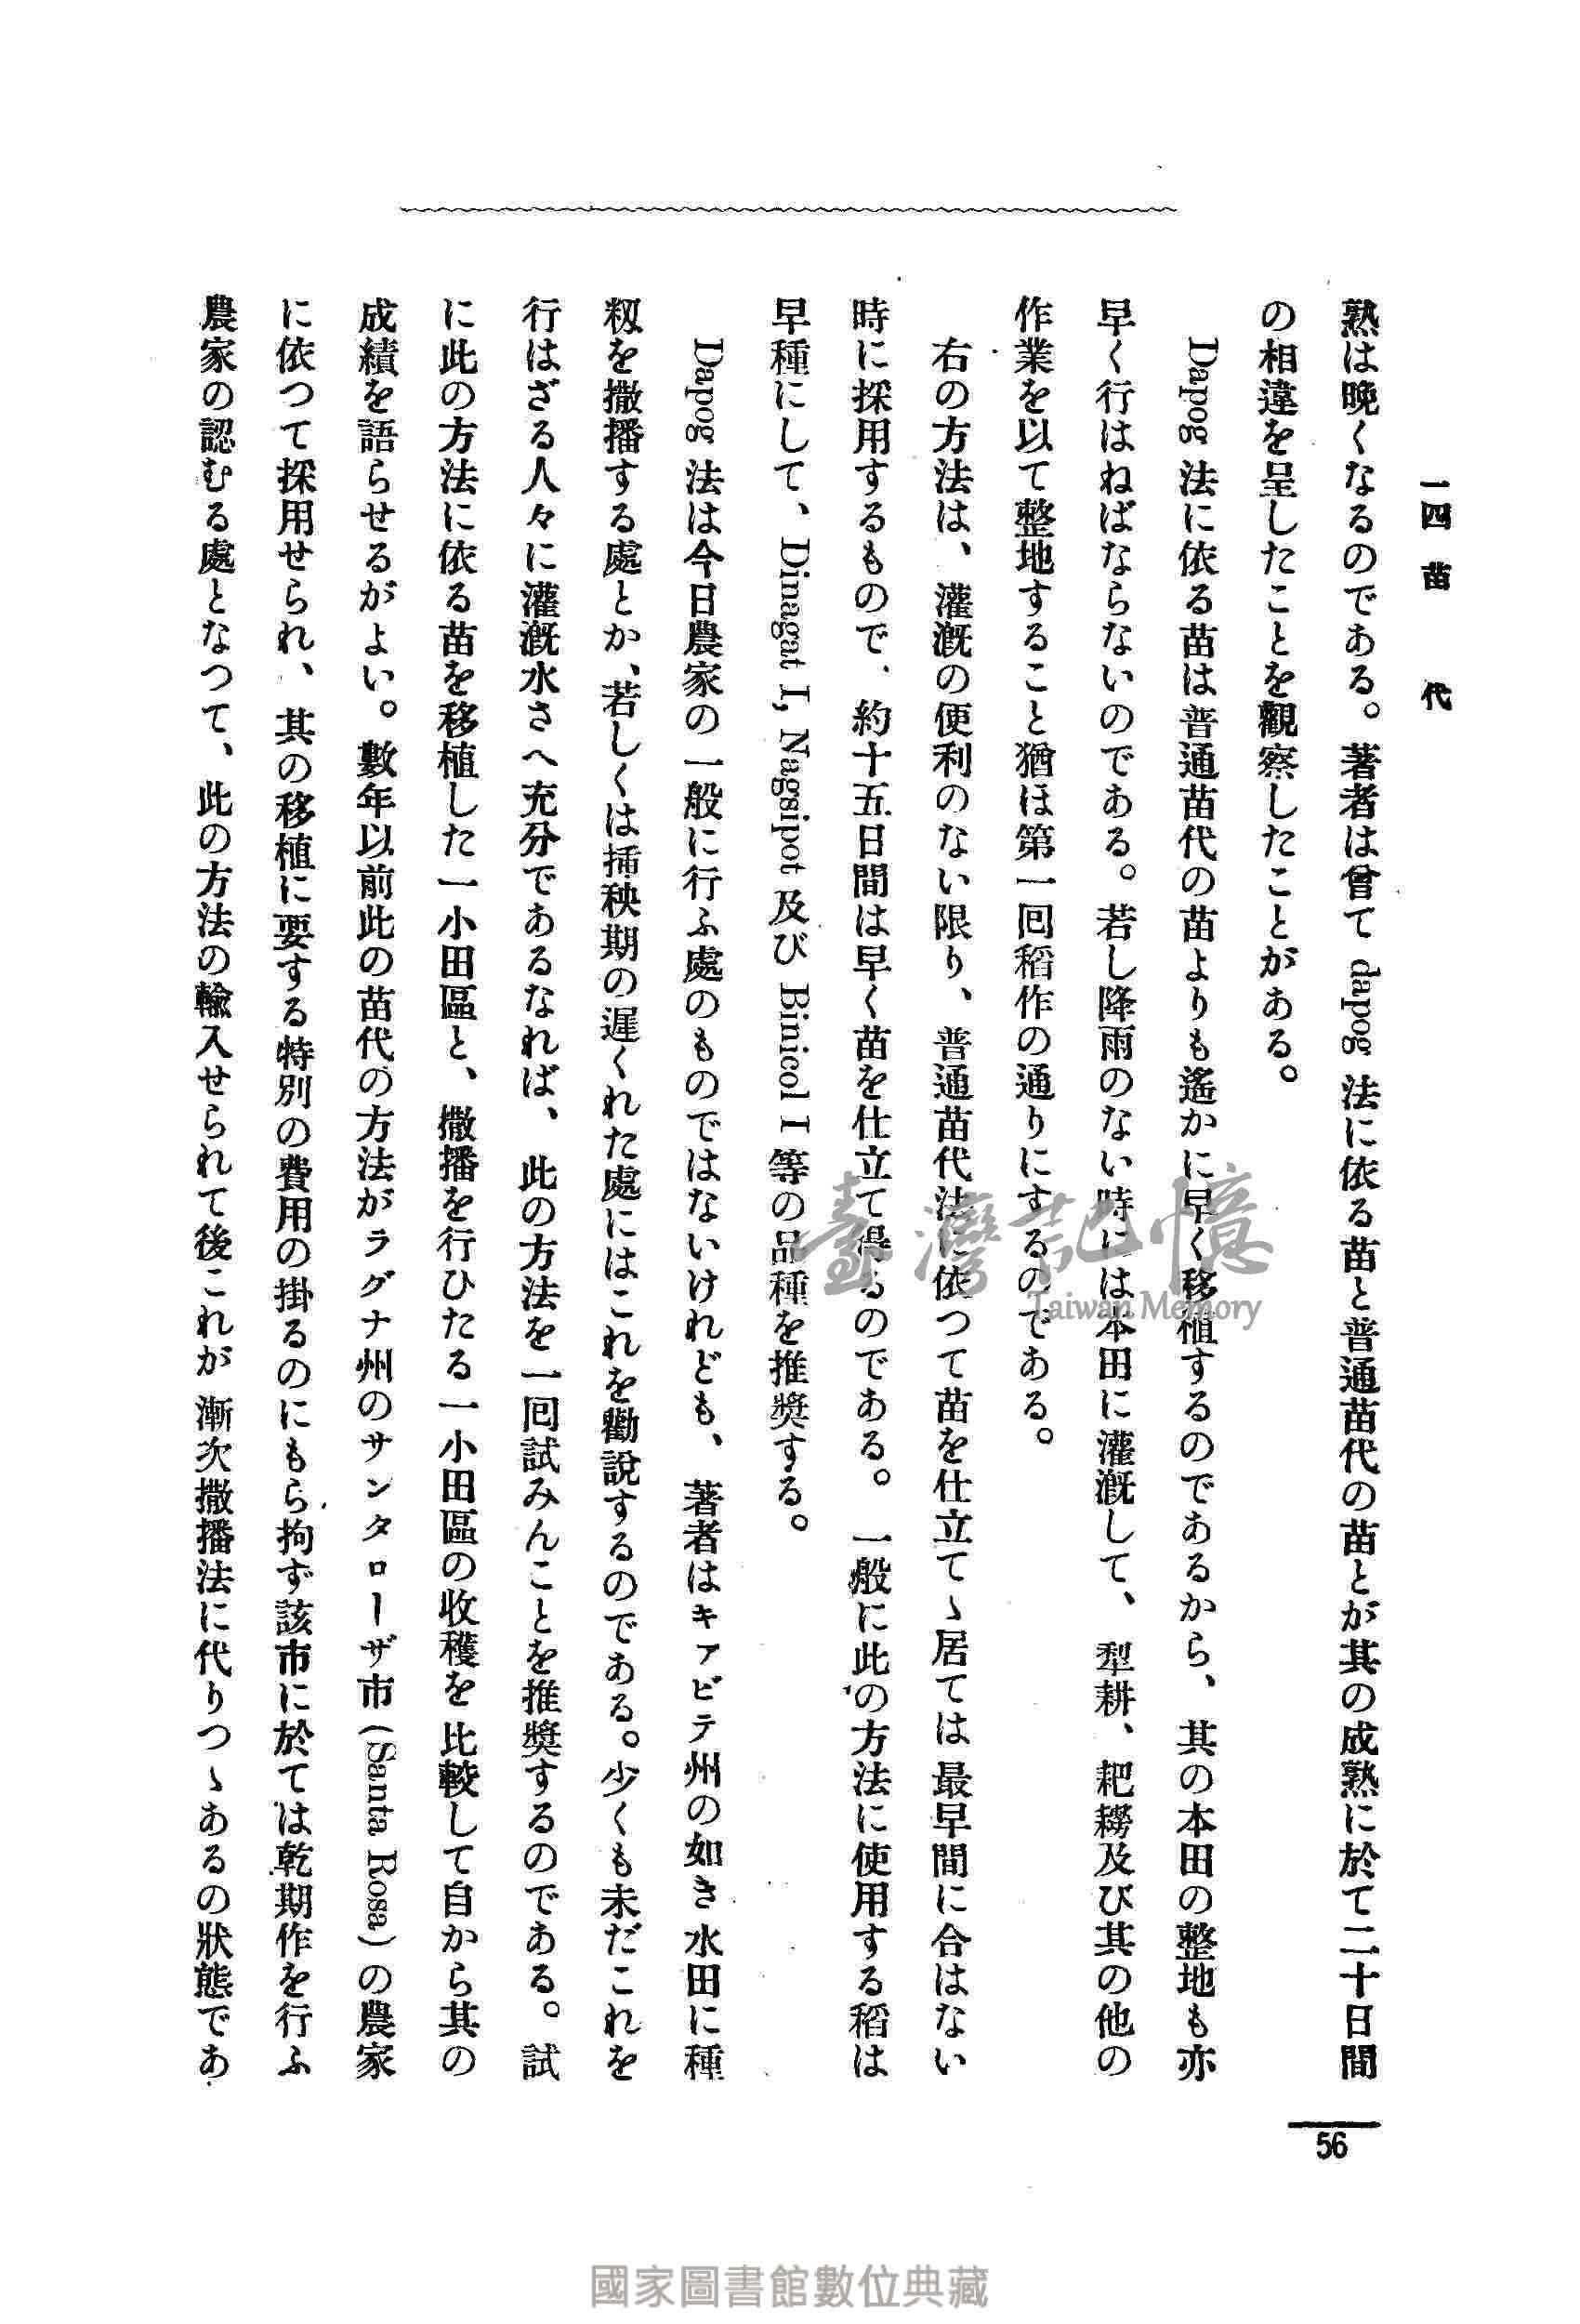 一四 苗代
熟は晩くなるのである。著者は曾て dapog 法に依る苗と普通苗代の苗とが其の成熟に於て二十日間
の相違を呈したことを觀察したことがある。
Dapog 法に依る苗は普通苗代の苗よりも遙かに早く移植するのであるから、其の本田の整地も亦
早く行はねばならないのである。若し降雨のない時には本田に灌漑して、犁耕、耙耮及び其の他の
作業を以て整地すること猶ほ第一囘稻作の通りにするのである。
右の方法は、灌漑の便利のない限り、普通苗代法に依つて苗を仕立てゝ居ては最早間に合はない
時に採用するもので、約十五日間は早く苗を仕立て得るのである。一般に此の方法に使用する稻は
早種にして、Dinagat I, Nagsipot 及び Binicol I 等の品種を推奬する。
Dapog 法は今日農家の一般に行ふ處のものではないけれども、著者はキアビテ州の如き水田に種
籾を撒播する處とか、若しくは揷秧期の遲くれた處にはこれを勸說するのである。少くも未だこれを
行はざる人々に灌漑水さへ充分であるなれば、此の方法を一囘試みんことを推奬するのである。試
に此の方法に依る苗を移植した一小田區と、撒播を行ひたる一小田區の收穫を比較して自から其の
成績を語らせるがよい。數年以前此の苗代の方法がラグナ州のサンタローザ市(Santa Rosa)の農家
に依つて採用せられ、其の移植に要する特別の費用の掛るのにもら拘ず該市に於ては乾期作を行ふ
農家の認むる處となつて、此の方法の輸入せられて後これが漸次撒播法に代りつゝあるの狀態であ
56
臺灣記憶
Taiwan Memory
國家圖書館數位典藏